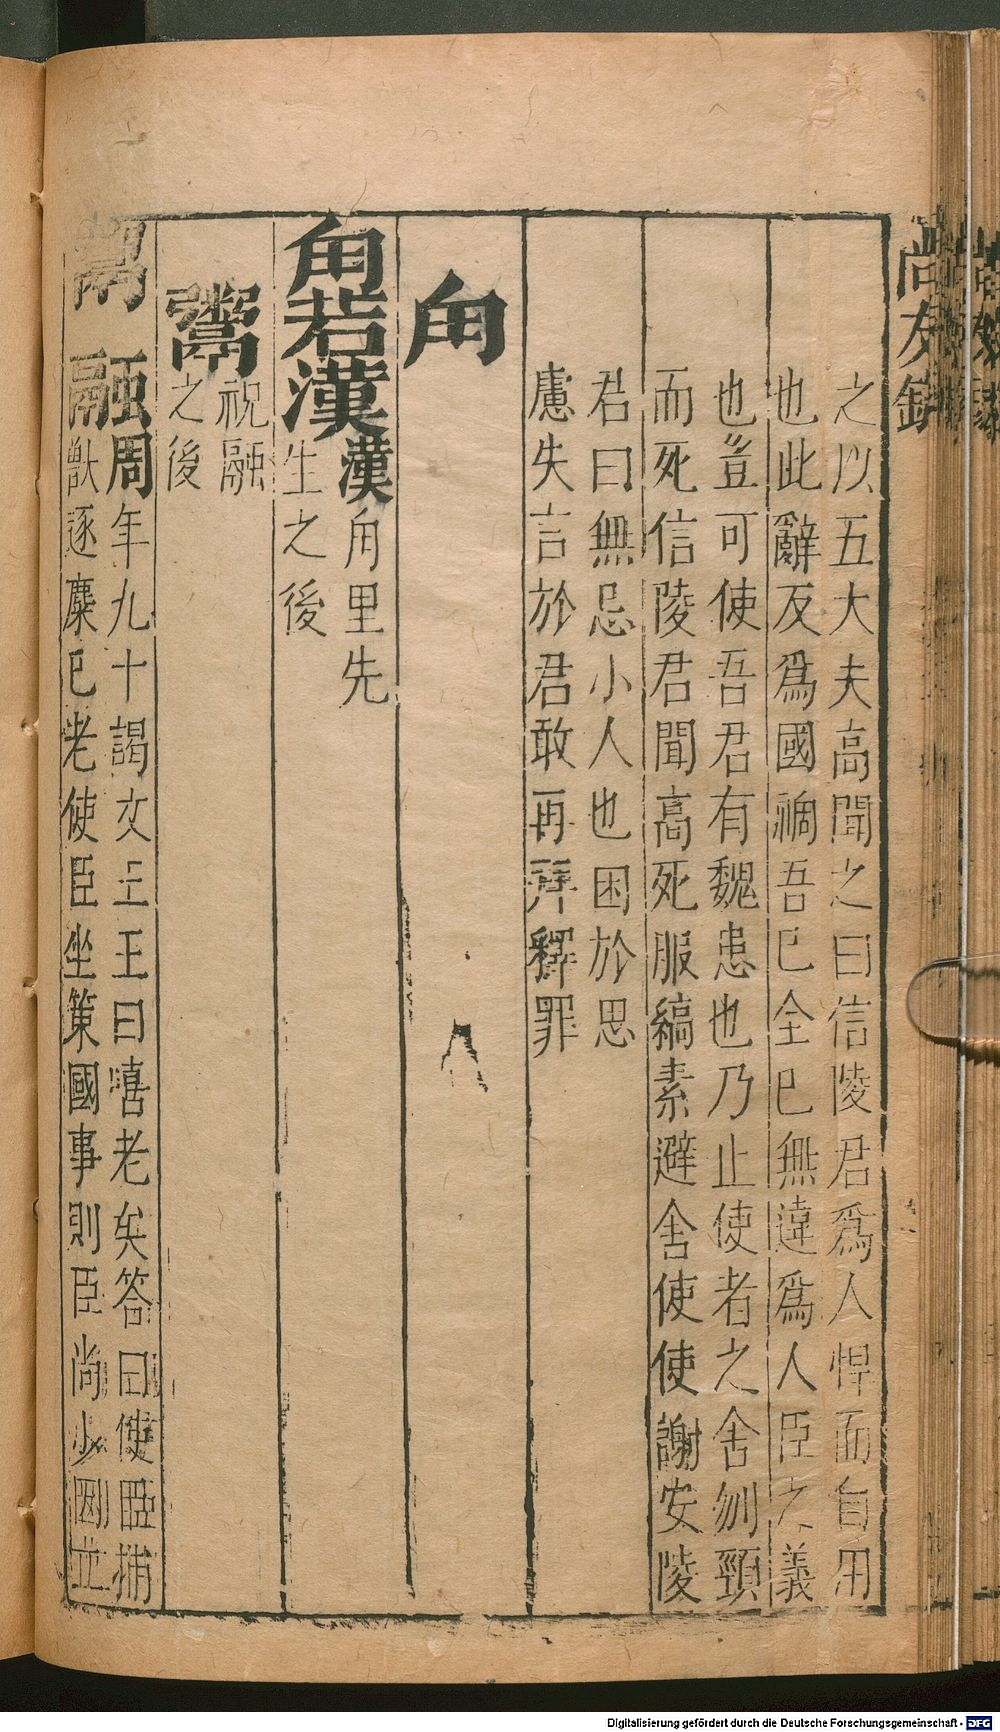 尚友錄
之以五大夫高聞之曰信陵君爲人悍而自用
也此辭反爲國禍吾已全已無違爲人臣之義
也豈可使吾君有魏患也乃止使者之舍刎頸
而死信陵君聞高死服縞素避舍使使謝安陵
君曰無忌小人也困於思
慮失言於君敢再拜釋罪
角
角若漢
漢角里先
生之後
鬻
祝融
之後
鬻融
周年九十謁文王王曰嘻老矣答曰使臣捕
獸逐麋已老使臣坐策國事則臣尚少因立
Digitalisierung gefördert durch die Deutsche Forschungsgemeinschaft - DFG